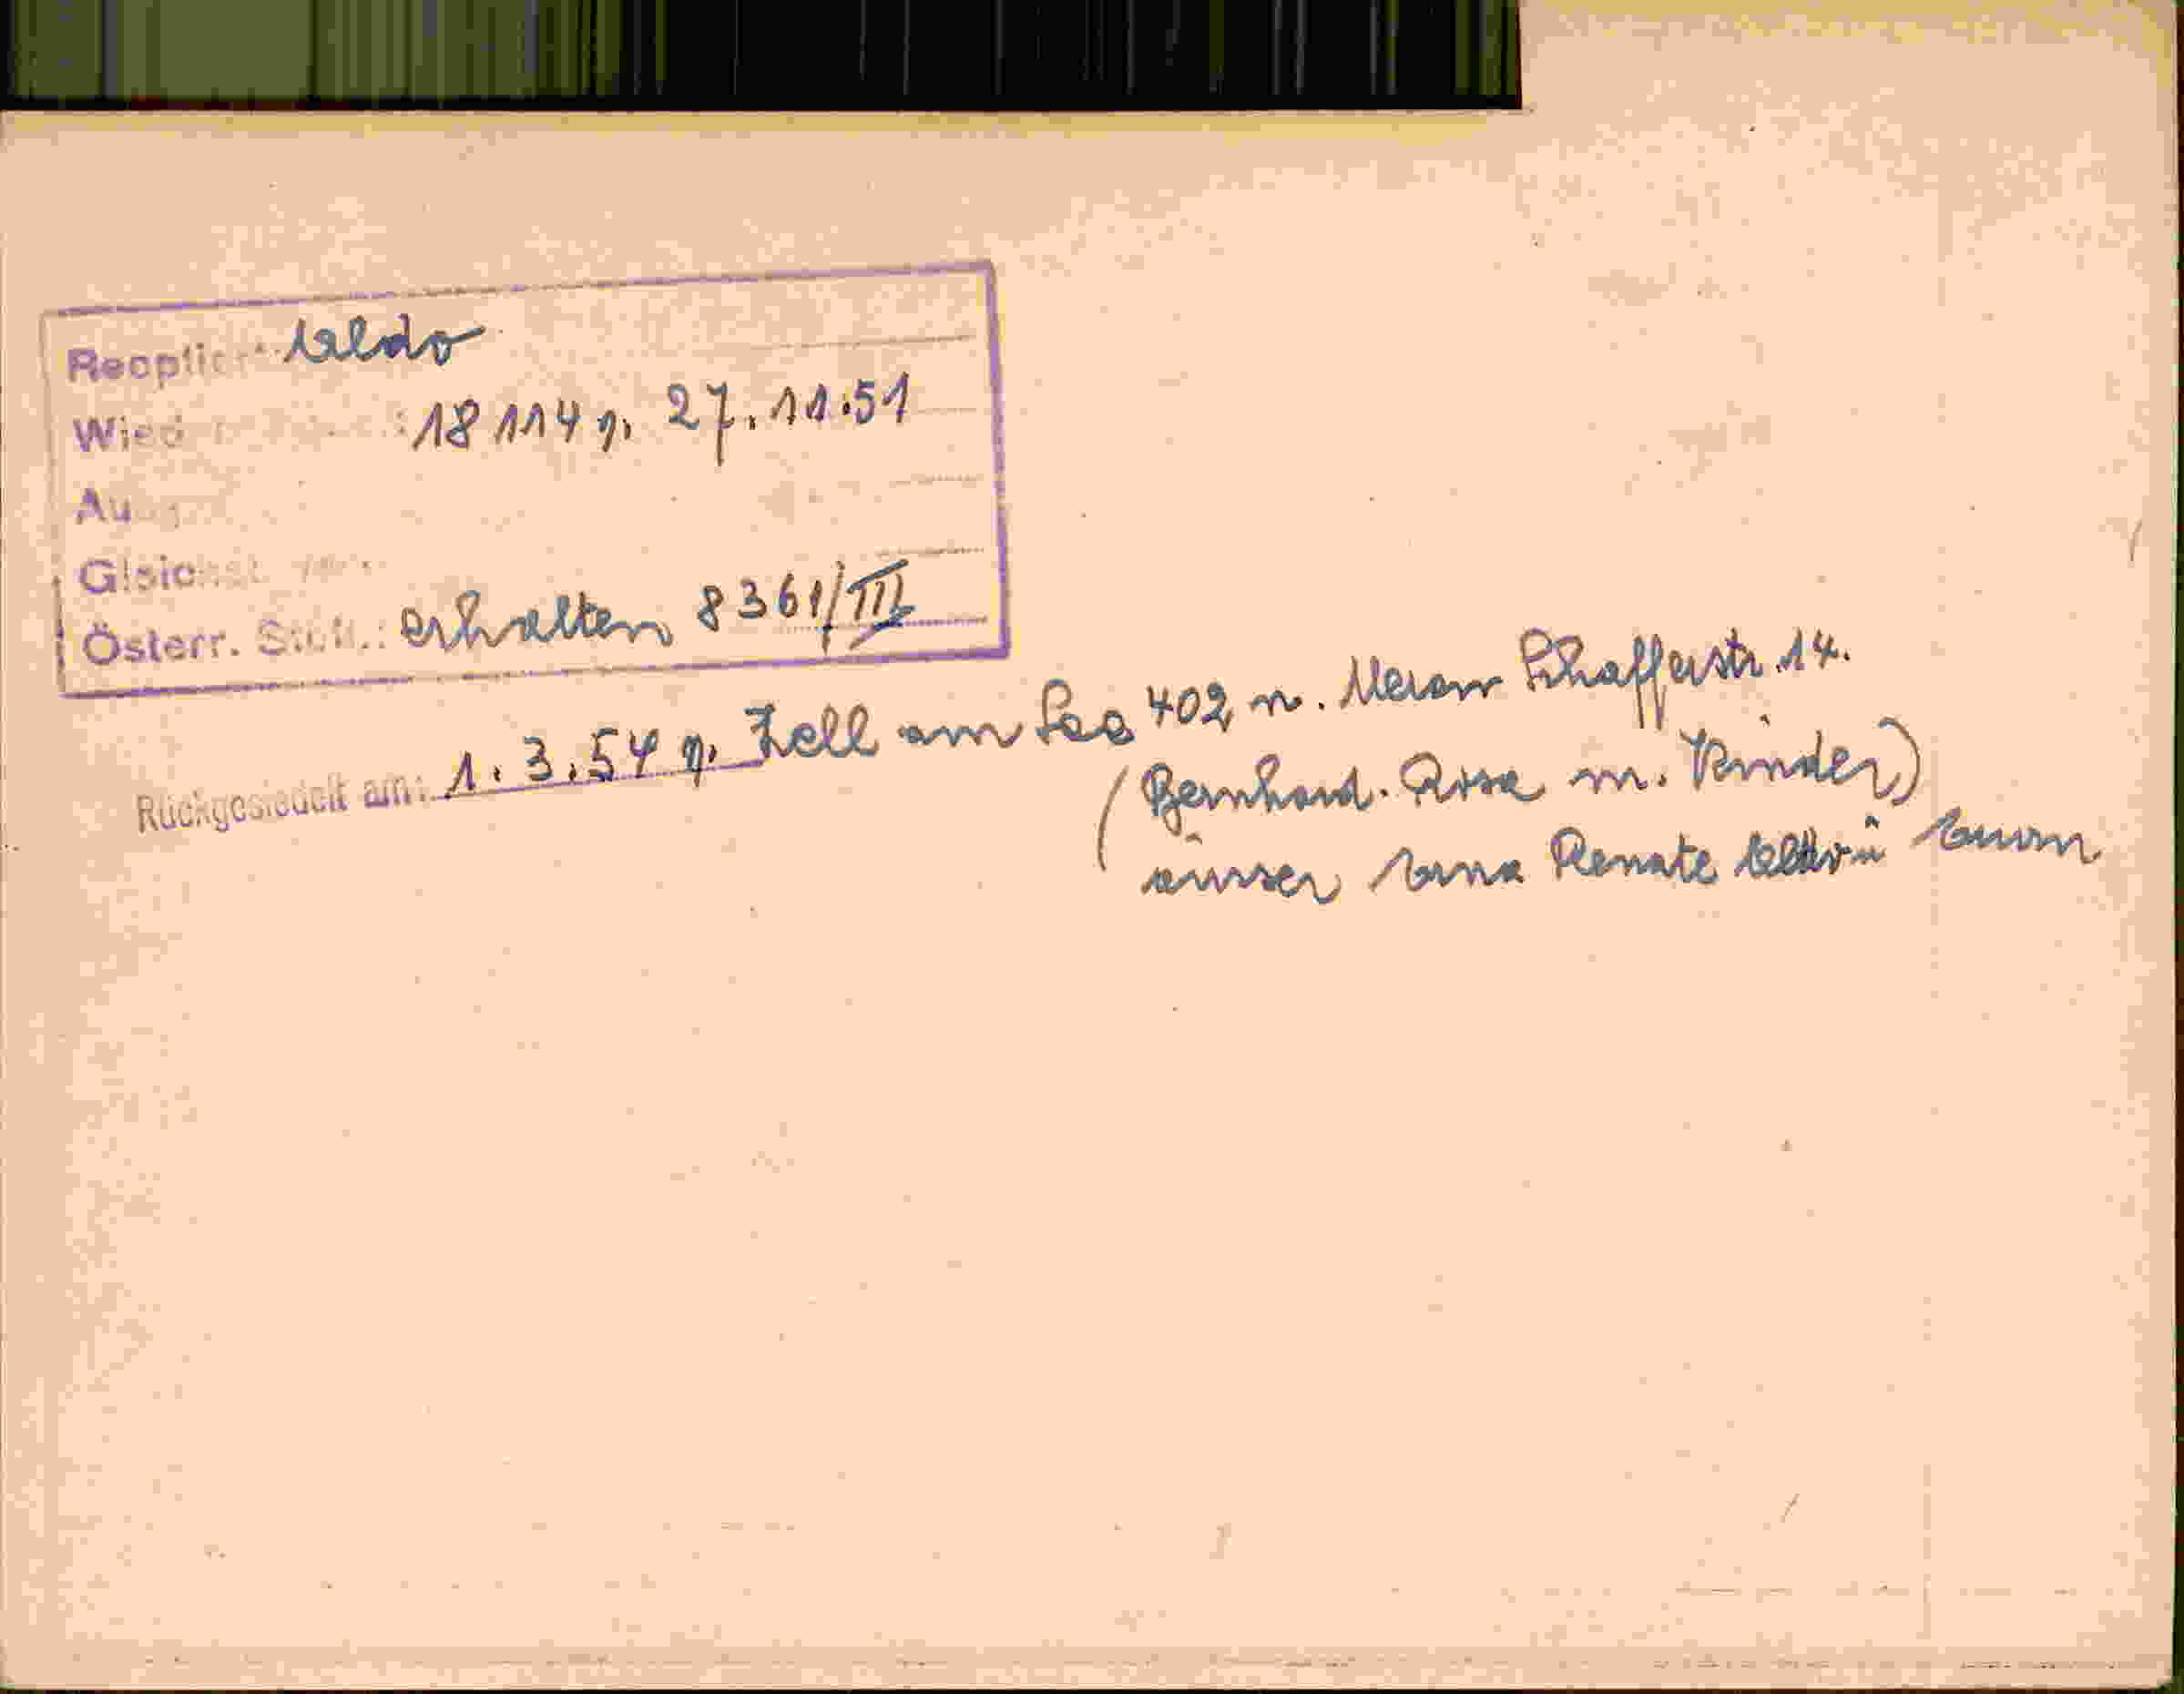 Reoptiert: Aldo
Wied : 18114 v. 27.11.51
Ausg
Gleichst.
Österr. Stbft.: erhalten 8361/III
Rückgesiedelt am: 1.3.54 v. Zell am See 402 n. Meran Schafferstr. 14.
(Bernhard. Rosa m. Kinder)
ausser Erna Renate Aldo u